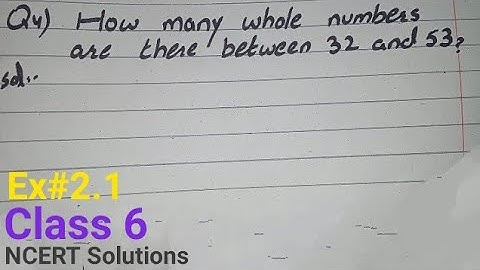 Q4) How many whole numbers
are there between 32 and 53?
sol..
Ex#2.1
Class 6
NCERT Solutions